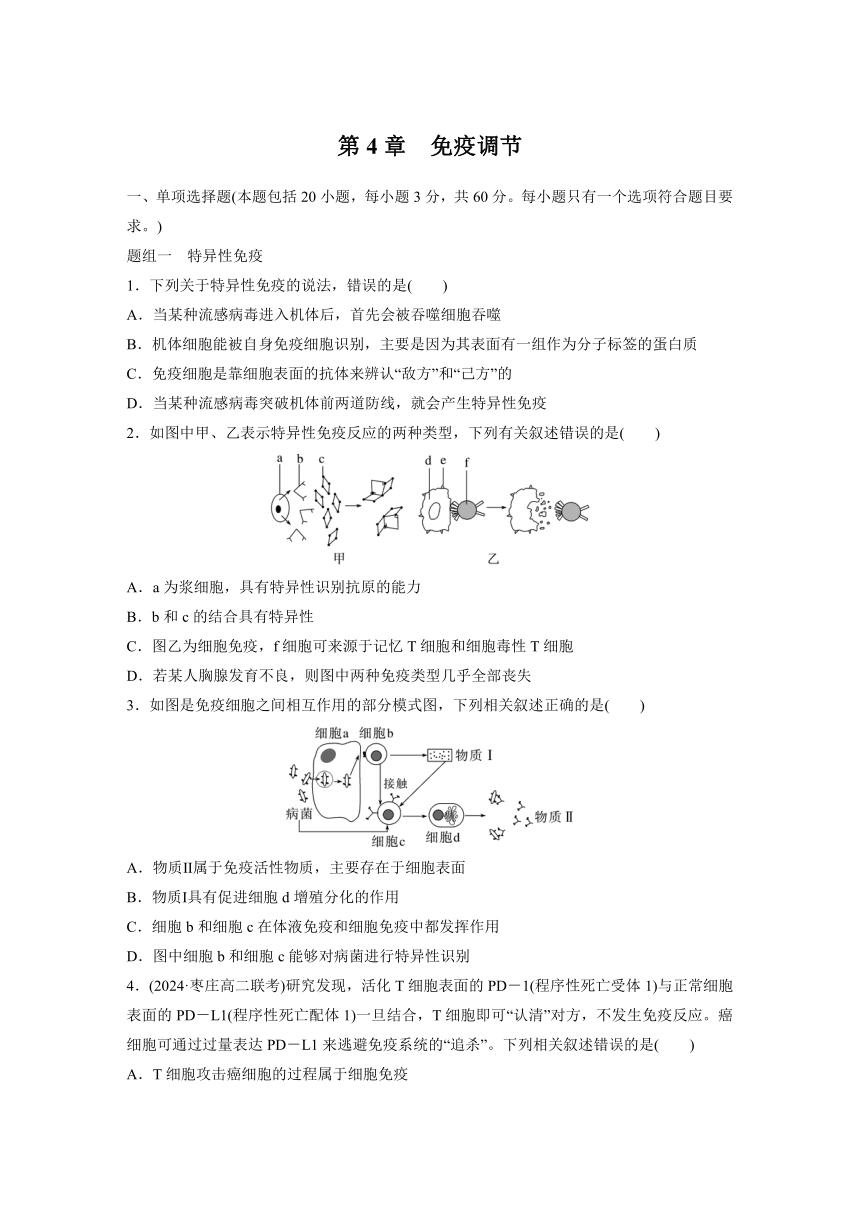 第 4 章　免疫调节
一、单项选择题(本题包括 20 小题，每小题 3 分，共 60 分。每小题只有一个选项符合题目要
求。)
题组一　特异性免疫
1．下列关于特异性免疫的说法，错误的是(　　)
A．当某种流感病毒进入机体后，首先会被吞噬细胞吞噬
B．机体细胞能被自身免疫细胞识别，主要是因为其表面有一组作为分子标签的蛋白质
C．免疫细胞是靠细胞表面的抗体来辨认“敌方”和“己方”的
D．当某种流感病毒突破机体前两道防线，就会产生特异性免疫
2．如图中甲、乙表示特异性免疫反应的两种类型，下列有关叙述错误的是(　　)
a b c d e f
甲 乙
A．a 为浆细胞，具有特异性识别抗原的能力
B．b 和 c 的结合具有特异性
C．图乙为细胞免疫，f 细胞可来源于记忆 T 细胞和细胞毒性 T 细胞
D．若某人胸腺发育不良，则图中两种免疫类型几乎全部丧失
3．如图是免疫细胞之间相互作用的部分模式图，下列相关叙述正确的是(　　)
细胞a 细胞b
物质Ⅰ
接触
病菌
物质Ⅱ
细胞c 细胞d
A．物质Ⅱ属于免疫活性物质，主要存在于细胞表面
B．物质Ⅰ具有促进细胞 d 增殖分化的作用
C．细胞 b 和细胞 c 在体液免疫和细胞免疫中都发挥作用
D．图中细胞 b 和细胞 c 能够对病菌进行特异性识别
4．(2024·枣庄高二联考)研究发现，活化 T 细胞表面的 PD－1(程序性死亡受体 1)与正常细胞
表面的 PD－L1(程序性死亡配体 1)一旦结合，T 细胞即可“认清”对方，不发生免疫反应。癌
细胞可通过过量表达 PD－L1 来逃避免疫系统的“追杀”。下列相关叙述错误的是(　　)
A．T 细胞攻击癌细胞的过程属于细胞免疫